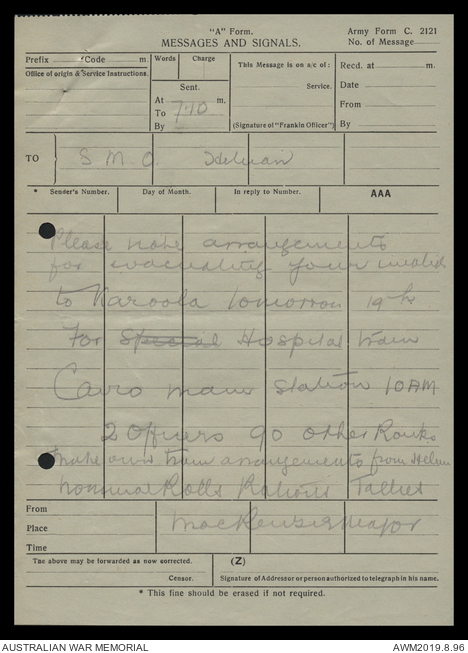 "A" Form.
Army Form C. 2121
MESSAGES AND SIGNALS.
No. of Message
Prefix Code m.
Office of origin & Service Instructions.
Words Charge
Sent.
At m.
To 7.10
By
This Message is on a/c of:
Service.
(Signature of "Frankin Officer")
Recd. at m.
Date
From
By
TO S M O Helwan
* Sender's Number. Day of Month. In reply to Number. AAA
Please note arrangements
for evacuating your invalids
to Karoola tomorrow 19th
For Special Hospital train
Cairo main station 10 AM
2 Officers 90 other Ranks
Make own train arrangements from Helwan
nominal Rolls Rations Tallies
From
Place
Time
MacKenzie Major
The above may be forwarded as now corrected.
(Z)
Censor.
Signature of Addressor or person authorized to telegraph in his name.
* This line should be erased if not required.
AUSTRALIAN WAR MEMORIAL
AWM2019.8.96